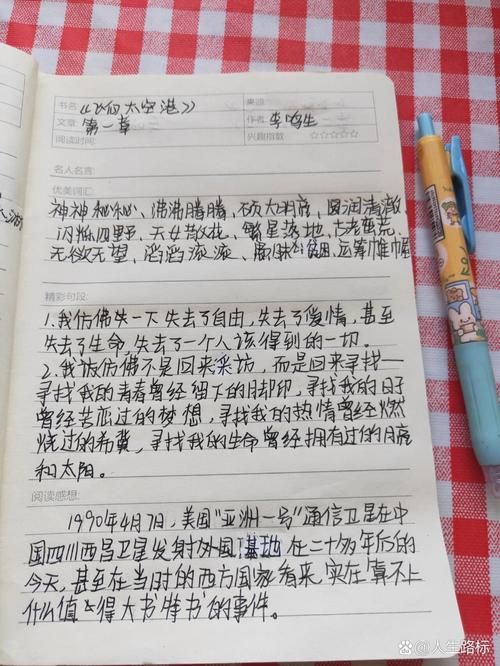 书名 《飞向太空港》 来源
文章: 第一章 作者: 李鸣生
阅读时间: 兴趣指数 ☆☆☆☆☆
名人名言:
优美词汇:
神神秘秘、沸沸腾腾、硕大明亮、圆润清澈
闪烁四野、天女散花、繁星落地、古老荒荒
无欲无望、滔滔滚滚、运筹帷幄
精彩句段:
1.我仿佛失一下失去了自由,失去了爱情,甚至
失去了生命,失去了一个人该得到的一切。
2.我仿佛不是回来采访,而是回来寻找—
寻找我的青春曾经留下的脚印,寻找我的日子
曾经苦恋过的梦想,寻找我的热情曾经燃
烧过的希冀,寻找我的生命曾经拥有过的月亮
和太阳。
阅读感想:
1990年4月7日,美国"亚洲一号"通信卫星在中
国四川西昌卫星发射外国基地在二十多年后的
今天,甚至在当时的西方国家看来,实在算不上
什么值得大书特书的事件。
@人生路标